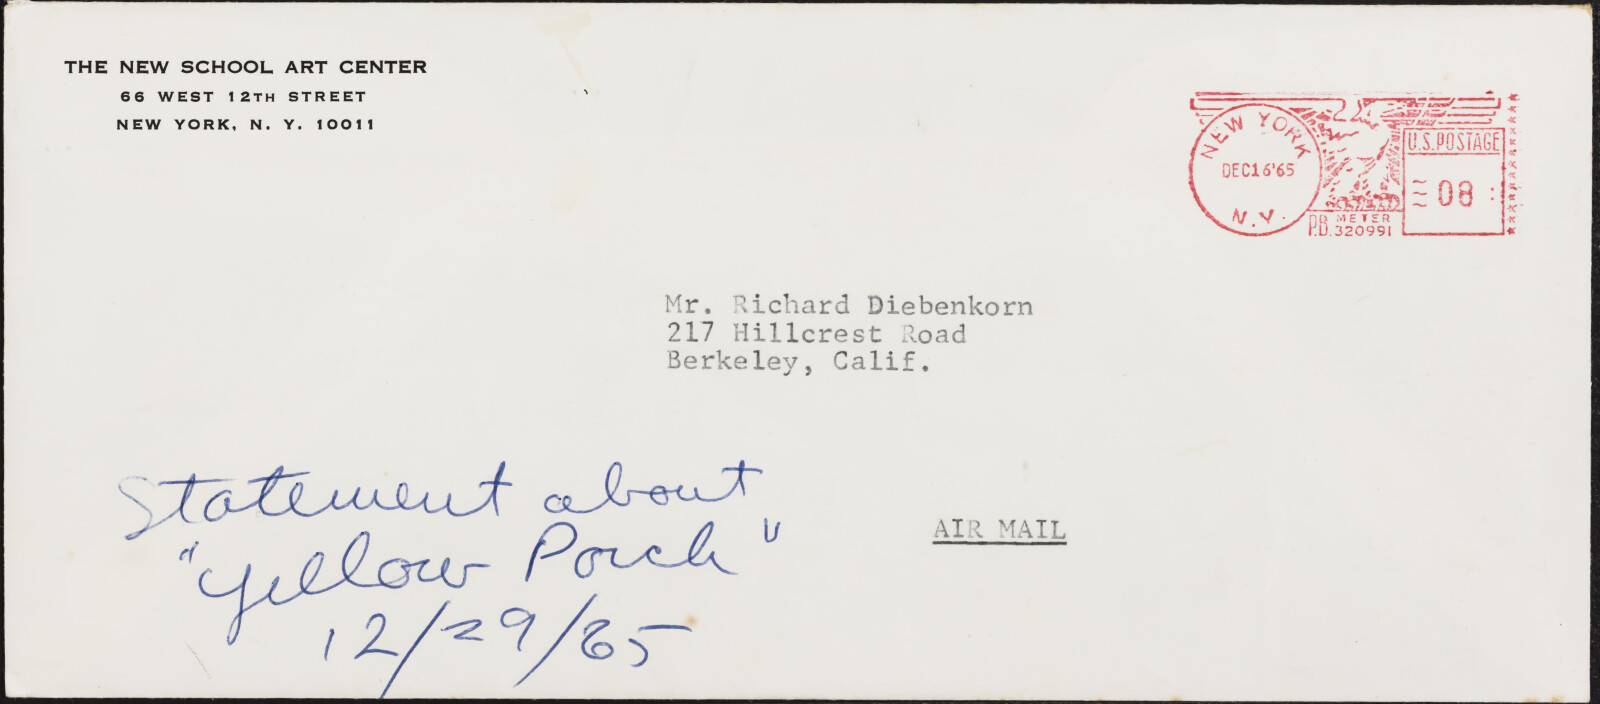 THE NEW SCHOOL ART CENTER
66 WEST 12TH STREET
NEW YORK, N. Y. 10011
NEW YORK
DEC16'65
N.Y.
U.S.POSTAGE
08
P.B. METER
320991
Mr. Richard Diebenkorn
217 Hillcrest Road
Berkeley, Calif.
AIR MAIL
Statement about
"Yellow Porch"
12/29/65